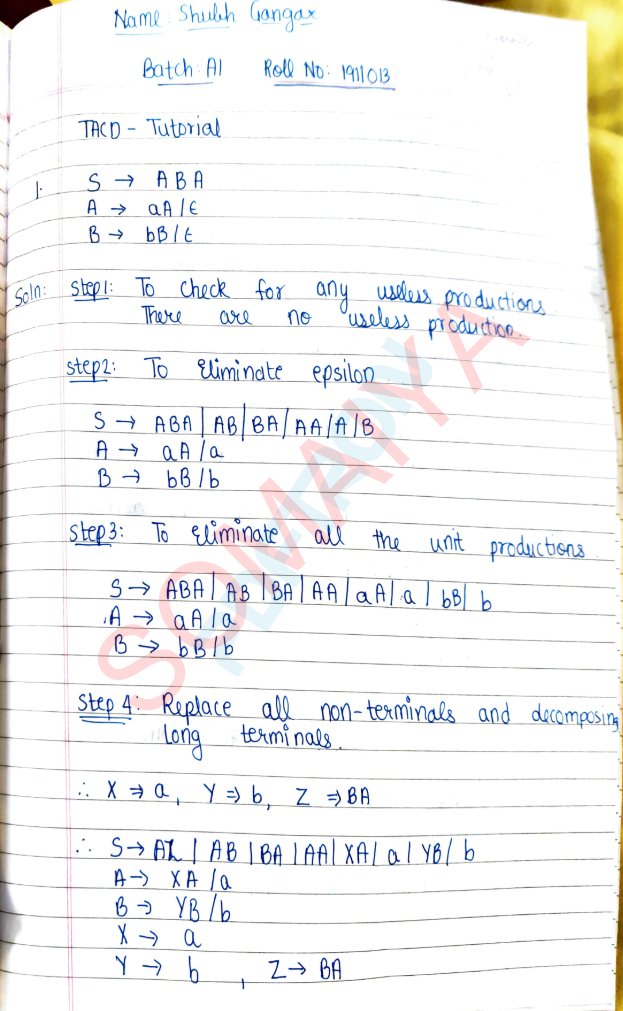 Name: Shubh Gangar
Batch: A1 Roll No: 1911013
TACD - Tutorial
1. S → ABA
A → aA/ε
B → bB/ε
Soln: Step1: To check for any useless productions
There are no useless production.
Step2: To Eliminate epsilon
S → ABA | AB | BA / AA / A / B
A → aA /a
B → bB/b
Step3: To Eliminate all the unit productions
S → ABA | AB | BA | AA | aA | a | bB | b
A → aA /a
B → bB/b
Step 4: Replace all non-terminals and decomposing
long terminals.
∴ X ⇒ a, Y ⇒ b, Z ⇒ BA
∴ S → AZ | AB | BA | AA | XA / a | YB / b
A → XA /a
B → YB/b
X → a
Y → b , Z → BA
SOMAIYA